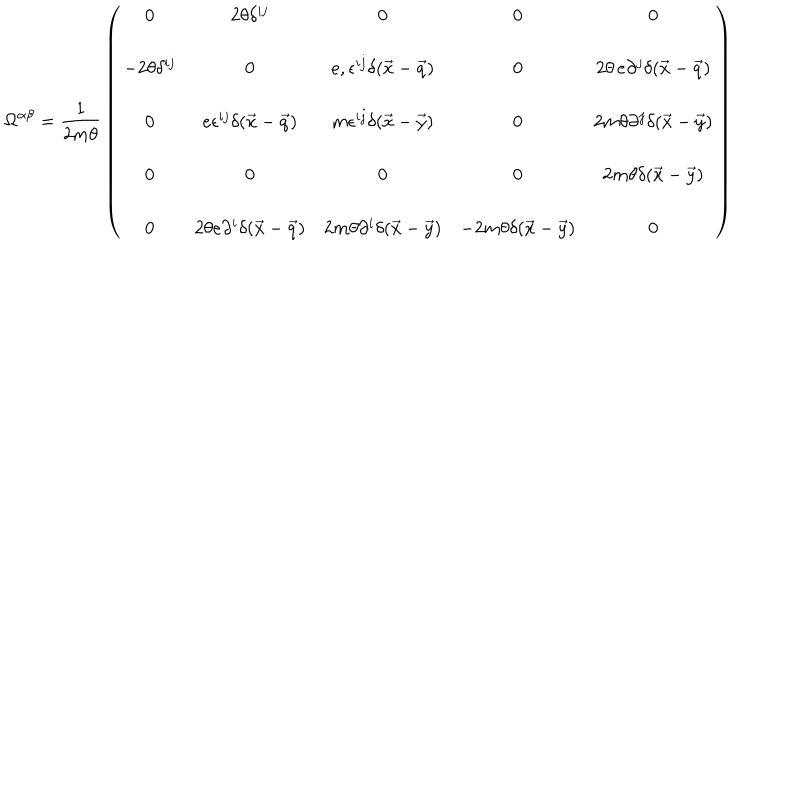 \Omega^{\alpha\beta} = \frac{1}{2m\theta} \left( \begin{array}{ccccc}
0 & 2\theta\delta^{ij} & 0 & 0 & 0 \\
-2\theta\delta^{ij} & 0 & e,\epsilon^{ij}\delta(\vec{x}-\vec{q}) & 0 & 2\theta\, e\partial^{j}\delta(\vec{x}-\vec{q}) \\
0 & e\epsilon^{ij}\delta(\vec{x}-\vec{q}) & m\epsilon^{ij}\delta(\vec{x}-\vec{y}) & 0 & 2m\theta\partial^{j}\delta(\vec{x}-\vec{y}) \\
0 & 0 & 0 & 0 & 2m\theta\delta(\vec{x}-\vec{y}) \\
0 & 2\theta e\partial^{i}\delta(\vec{x}-\vec{q}) & 2m\theta\partial^{i}\delta(\vec{x}-\vec{y}) & -2m\theta\delta(\vec{x}-\vec{y}) & 0
\end{array} \right)